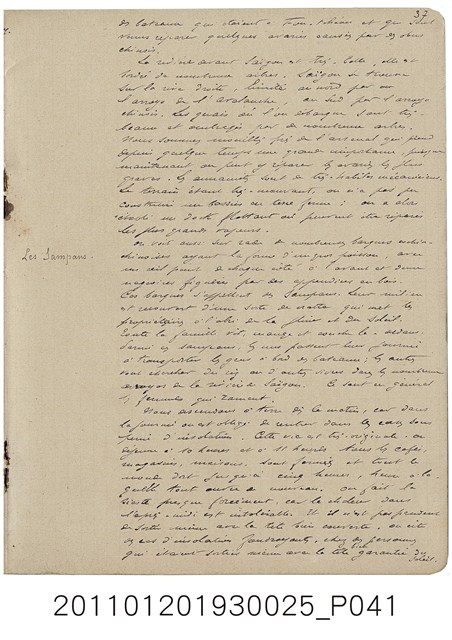 37
de bateaux qui étaient à Fou-Tchéou et qui sont
venus réparer quelques avaries causées par des obus
chinois.
La rivière avant Saïgon est très belle, elle est
bordée de nombreux arbres. Saïgon se trouve
sur la rive droite, limitée au nord par
l'arroyo de l'Avalanche, au Sud par l'arroyo
chinois. Les quais où l'on débarque sont très
beaux et ombragés par de nombreux arbres.
Nous sommes mouillés près de l'arsenal qui prend
depuis quelque temps une grande importance, puisque
maintenant on peut y réparer les avaries les plus
graves. Les annamites sont de très habiles mécaniciens.
Le terrain étant très mouvant, on n'a pas pu
construire un bassin en terre ferme : on a alors
établi un dock flottant où peuvent être réparés
les plus grands vapeurs.
Les Sampans.
On voit aussi sur rade de nombreuses barques
chinoises ayant la forme d'un gros poisson, avec
un œil peint de chaque côté à l'avant et deux
nageoires figurées par des appendices en bois.
Ces barques s'appellent des Sampans. Leur milieu
est recouvert d'une sorte de natte qui met les
propriétaires à l'abri de la pluie et du soleil.
Toute la famille vit, mange et couche là-dedans.
Parmi ces sampans, les uns passent leur journée
à transporter les gens à bord des bateaux ; les autres
vont chercher du riz ou d'autres vivres dans les nombreux
arroyos de la rivière de Saïgon. Ce sont en général
les femmes qui rament.
Nous descendons à terre dès le matin, car dans
la journée on est obligé de rentrer dans les cases sous
peine d'insolation. Cette vie est très originale : on
déjeune à 10 heures et à 11 heures tous les cafés,
magasins, maisons sont fermés et tout le
monde dort jusqu'à cinq heures, heure à la-
quelle tout ouvre de nouveau. On fait la
sieste presque forcément, car la chaleur dans
l'après-midi est intolérable. Il n'est pas prudent
de sortir même avec la tête bien couverte, on cite
des cas d'insolation foudroyante, chez des personnes
qui étaient sorties même avec la tête bien garantie du
soleil.
201101201930025_P041